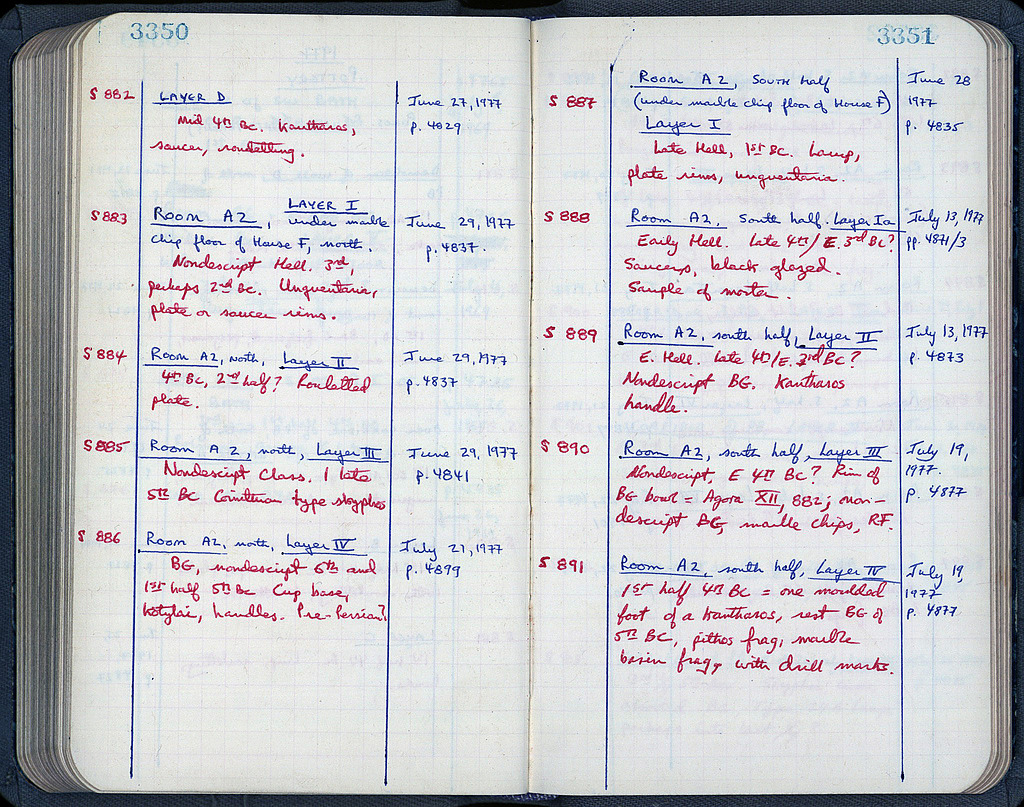 3350
S 882 LAYER D June 27, 1977
Mid 4th BC. Kantharos, p. 4829
saucer, rouletting.
LAYER I
S 883 Room A2, under marble June 29, 1977
chip floor of House F, north. p. 4837.
Nondescript Hell. 3rd,
perhaps 2nd BC. Unguentaria,
plate or saucer rims.
S 884 Room A2, north, Layer II June 29, 1977
4th BC, 2nd half? Rouletted p. 4837
plate.
S 885 Room A2, north, Layer III June 29, 1977
Nondescipt Class. 1 late p. 4841
5th BC Corinthian type skyphos
S 886 Room A2, north, Layer IV July 21, 1977
BG, nondescript 6th and p. 4899
1st half 5th BC Cup base,
kotylai, handles. Pre-Persian?
3351
Room A2, South half June 28
S 887 (under marble chip floor of House F) 1977
Layer I p. 4835
Late Hell, 1st BC. Lamp,
plate rims, unguentaria.
S 888 Room A2, South half. Layer Ia July 13, 1977
Early Hell. Late 4th/E. 3rd BC? pp. 4871/3
Saucers, black glazed.
Sample of mortar.
S 889 Room A2, south half, Layer II July 13, 1977
E. Hell. Late 4th/E. 3rd BC? p. 4873
Nondescript BG. Kantharos
handle.
S 890 Room A2, south half, Layer III July 19,
Nondescript, E 4th BC? Rim of 1977.
BG bowl = Agora XII, 882; non- p. 4877
descript BG, marble chips, RF.
S 891 Room A2, south half, Layer IV July 19,
1st half 4th BC = one moulded 1977
foot of a kantharos, rest BG of p. 4877
5th BC, pithos frag, marble
basin frag, with drill marks.